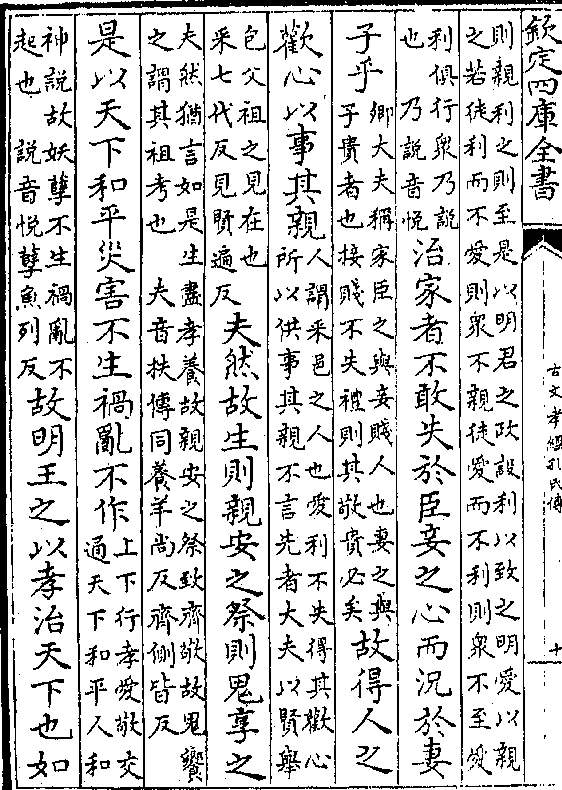 欽定四庫全書
古文孝經孔氏傳
十
則親利之則至是以明君之政設利以致之明愛以親
之若徒利而不愛則衆不親徒愛而不利則衆不至愛
利俱行衆乃說
也 乃說音悅
治家者不敢失於臣妾之心而況於妻
子乎
卿大夫稱家臣之與妾賤人也妻之與
子貴者也接賤不失禮則其敬貴必矣
故得人之
歡心以事其親
人謂采邑之人也愛利不失得其歡心
所以供事其親不言先者大夫以賢舉
包父祖之見在也
采七代反見賢遍反
夫然故生則親安之祭則鬼享之
夫然猶言如是生盡孝養故親安之祭致齊敬故鬼饗
之謂其祖考也 夫音扶傳同養羊尚反齊側皆反
是以天下和平災害不生禍亂不作
上下行孝愛敬交
通天下和平人和
神說故妖孽不生禍亂不
起也 說音悅孽魚列反
故明王之以孝治天下也如